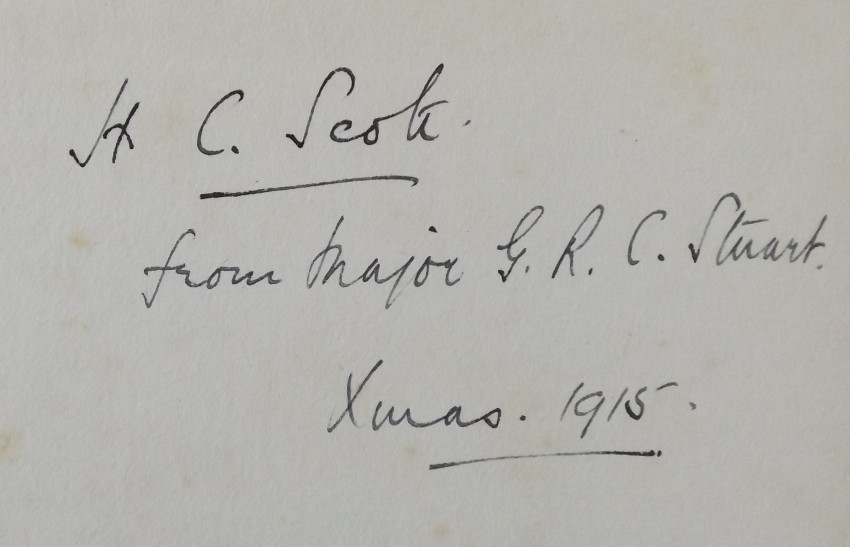 H C. Scott.
from Major G. R. C. Stuart.
Xmas. 1915.